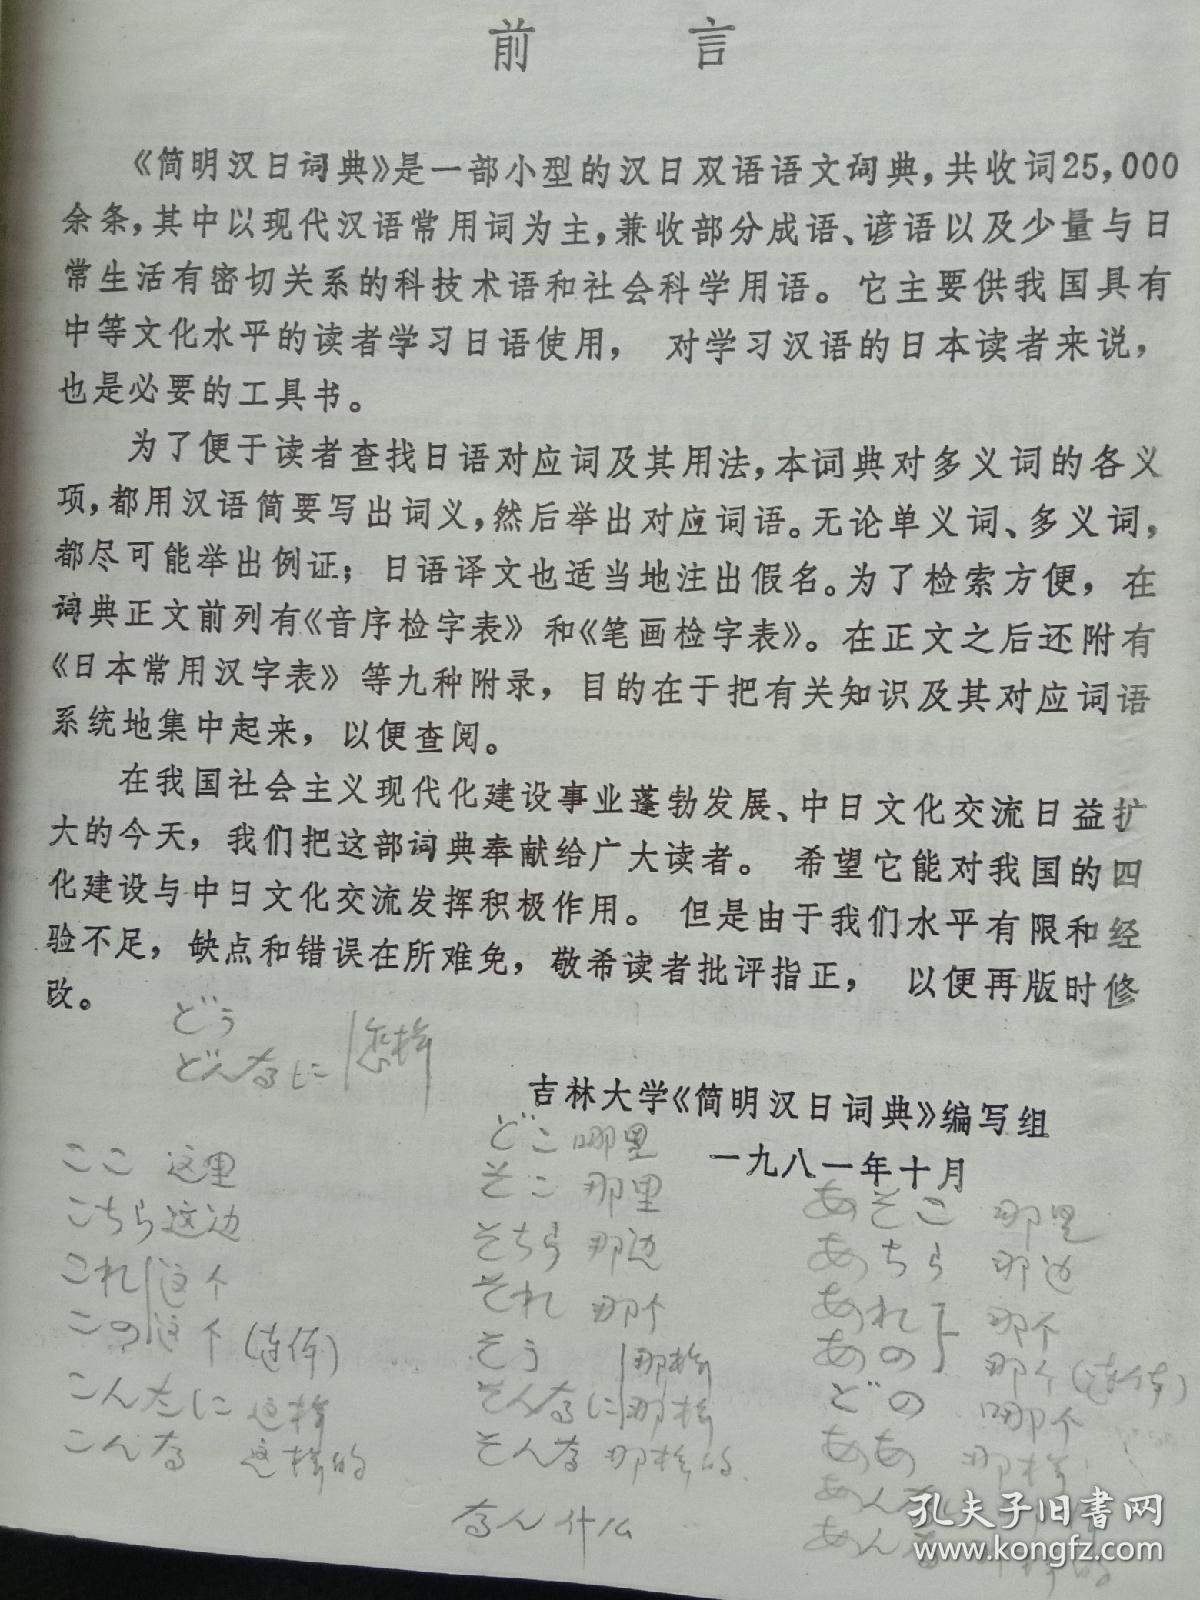 前言
《简明汉日词典》是一部小型的汉日双语语文词典，共收词25,000
余条，其中以现代汉语常用词为主，兼收部分成语、谚语以及少量与日
常生活有密切关系的科技术语和社会科学用语。它主要供我国具有
中等文化水平的读者学习日语使用， 对学习汉语的日本读者来说，
也是必要的工具书。
为了便于读者查找日语对应词及其用法，本词典对多义词的各义
项，都用汉语简要写出词义，然后举出对应词语。无论单义词、多义词，
都尽可能举出例证；日语译文也适当地注出假名。为了检索方便，在
词典正文前列有《音序检字表》和《笔画检字表》。在正文之后还附有
《日本常用汉字表》等九种附录，目的在于把有关知识及其对应词语
系统地集中起来，以便查阅。
在我国社会主义现代化建设事业蓬勃发展、中日文化交流日益扩
大的今天，我们把这部词典奉献给广大读者。 希望它能对我国的四
化建设与中日文化交流发挥积极作用。 但是由于我们水平有限和经
验不足，缺点和错误在所难免，敬希读者批评指正， 以便再版时修
改。
どう
どんなに 怎样
吉林大学《简明汉日词典》编写组
一九八一年十月
ここ 这里
こちら 这边
これ 这个
この 这个 (连体)
こんなに 这样
こんな 这样的
どこ 哪里
そこ 那里
そちら 那边
それ 那个
そう 那样
そんなに 那样
そんな 那样的
なん 什么
あそこ 那里
あちら 那边
あれ 那个
あの 那个 (连体)
どの 哪个
ああ 那样
あんな
孔夫子旧书网
www.kongfz.com